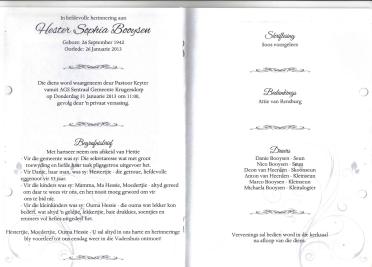 In liefdevolle herinnering aan
Hester Sophia Booysen
Gebore: 26 September 1942
Oorlede: 26 Januarie 2013
Die diens word waargeneem deur Pastoor Keyter
vanuit AGS Sentraal Gemeente Krugersdorp
op Donderdag 31 Januarie 2013 om 11:00,
gevolg deur 'n privaat verassing.
Begrafnisbrief
Met hartseer neem ons afskeid van Hestie
- Vir die gemeente was sy: Die sekretaresse wat met groot
toewyding en liefde haar taak pligsgetrou uitgevoer het.
- Vir Danie, haar man, was sy: Hestertjie - die getroue, liefdevolle
eggenoot vir 53 jaar.
- Vir die kinders was sy: Mamma, Ma Hestie, Moedertjie - altyd gereed
om daar te wees vir ons, en het nooit moeg geword om vir
ons te bid nie.
- Vir die kleinkinders was sy: Ouma Hestie - die ouma wat lekker kon
bederf, wat altyd 'n geldjie, lekkertjie, baie drukkies, soentjies en
druwwe vol liefde uitgedeel het.
Hestertjie, Moedertjie, Ouma Hestie - U sal altyd in ons harte en herinneringe
bly voortleef tot ons eendag weer in die Vaderhuis ontmoet!
Skriflesing
Soos voorgelees
Bedankings
Attie van Rensburg
Draers
Danie Booysen - Seun
Nico Booysen - Seun
Deon van Heerden - Skoonseun
Anton van Heerden - Kleinseun
Marco Booysen - Kleinseun
Michaela Booysen - Kleindogter
Verversings sal bedien word in die kerksaal
na afloop van die diens.